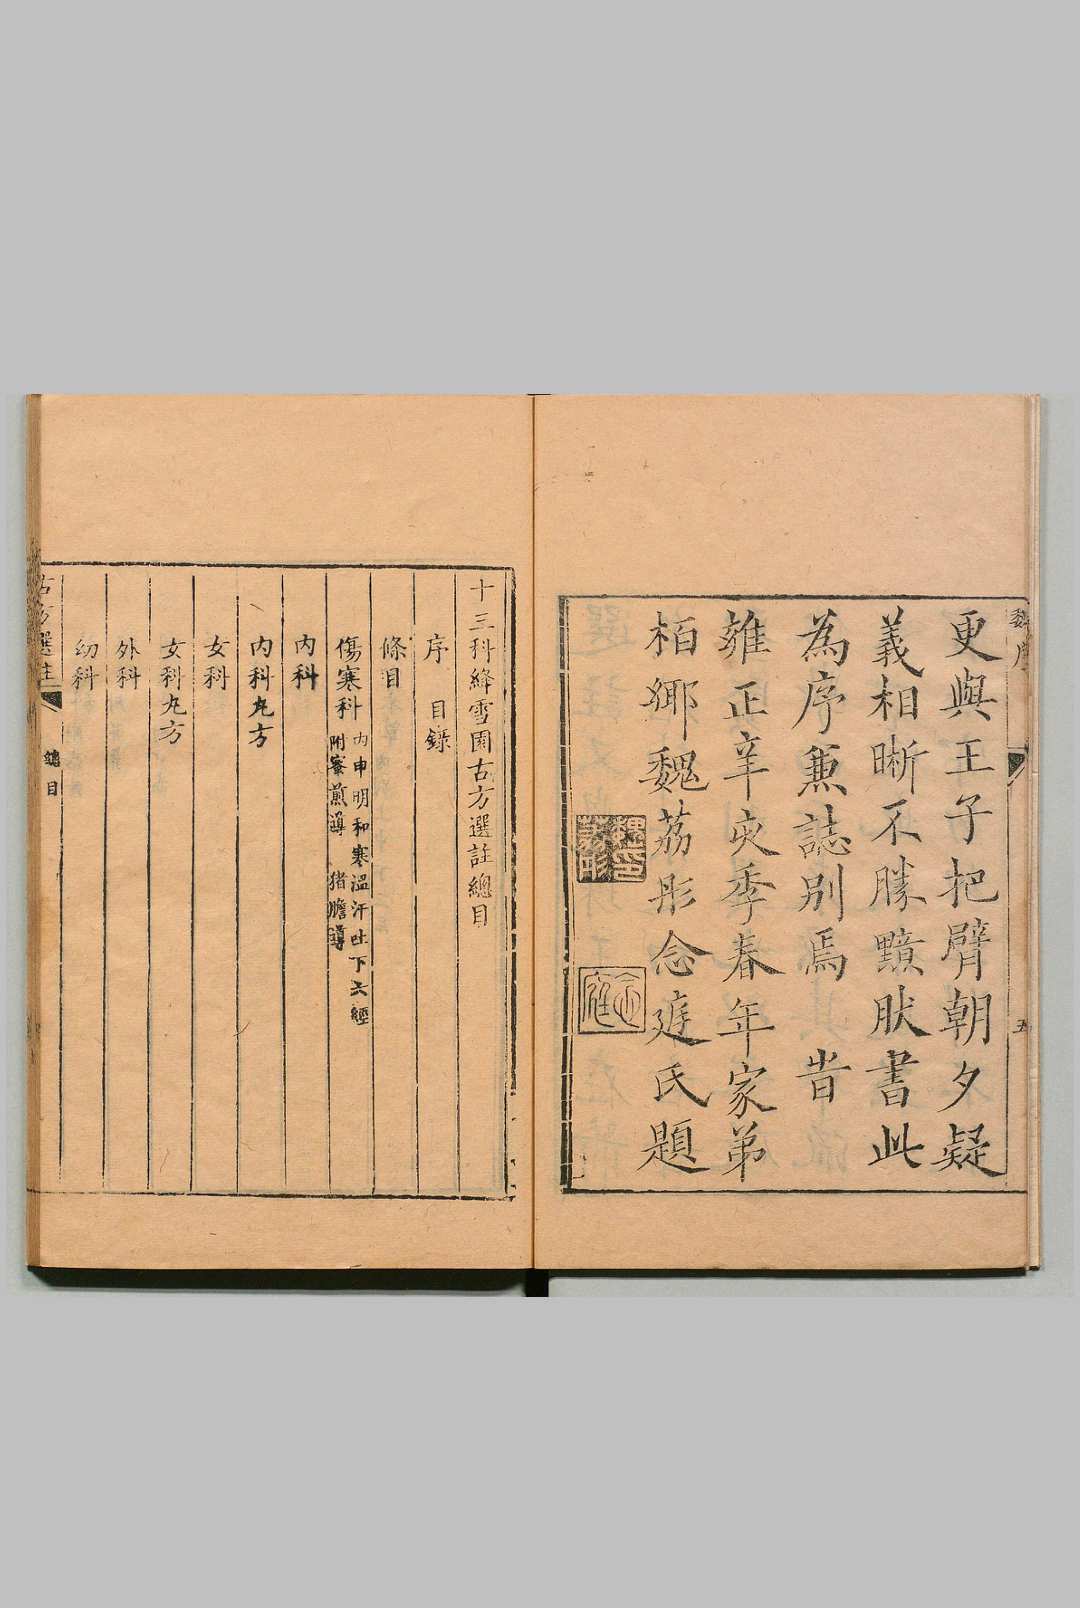 魏序
五
更與王子把臂朝夕疑
義相晰不勝黯肰書此
為序兼誌別焉 旹
雍正辛亥季春年家弟
栢鄉魏荔彤念庭氏題
魏荔彤印
念庭
十三科絳雪園古方選註總目
序 目錄
條目
傷寒科 内申明和寒溫汗吐下六經
附蜜煎導 猪膽導
内科
内科丸方
女科
女科丸方
外科
幼科
古方選註 總目